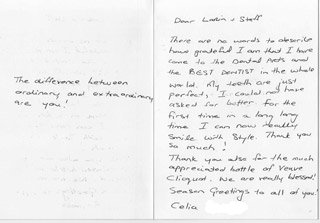 The difference between
ordinary and extraordinary
are you!
Dear Lorkin & Staff
There are no words to describe
how grateful I am that I have
come to the Dental Pets and
the BEST DENTIST in the whole
world. My teeth are just
perfect; I could not have
asked for better for the
first time in a long long
time I can now really
smile with style. Thank you
so much!
Thank you also for the much
appreciated bottle of Veuve
Clicquot. We are really blessed!
Season Greetings to all of you!
Celia